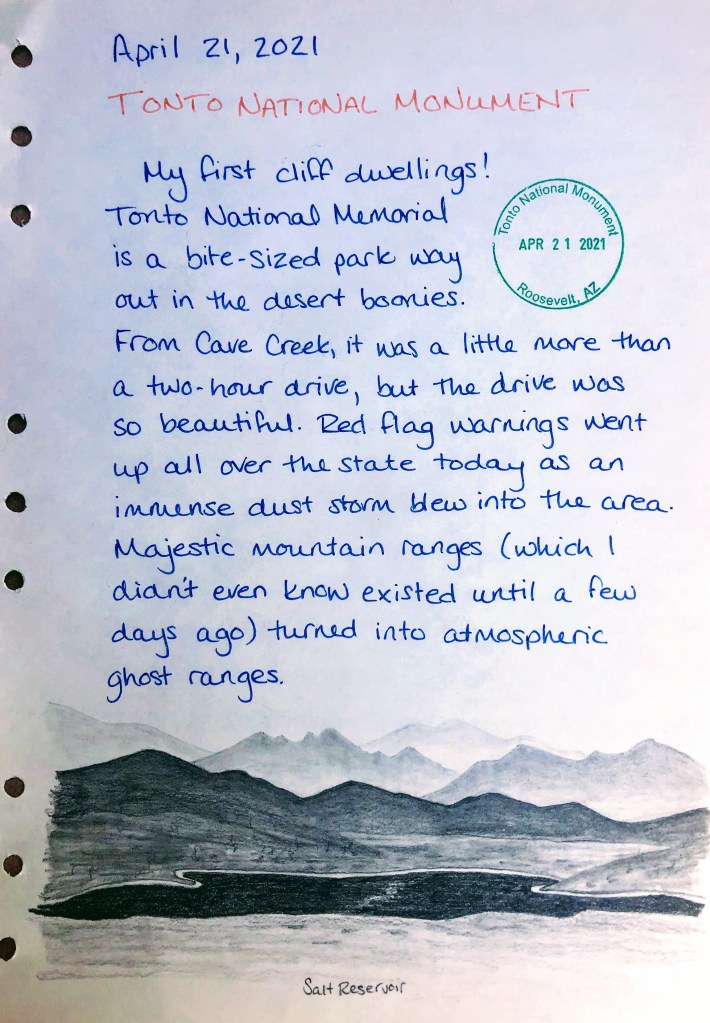 April 21, 2021
TONTO NATIONAL MONUMENT
My first cliff dwellings!
Tonto National Memorial
is a bite-sized park way
out in the desert boonies.
Tonto National Monument
APR 21 2021
Roosevelt, AZ
From Cave Creek, it was a little more than
a two-hour drive, but the drive was
so beautiful. Red flag warnings went
up all over the state today as an
immense dust storm blew into the area.
Majestic mountain ranges (which I
didn't even know existed until a few
days ago) turned into atmospheric
ghost ranges.
Salt Reservoir